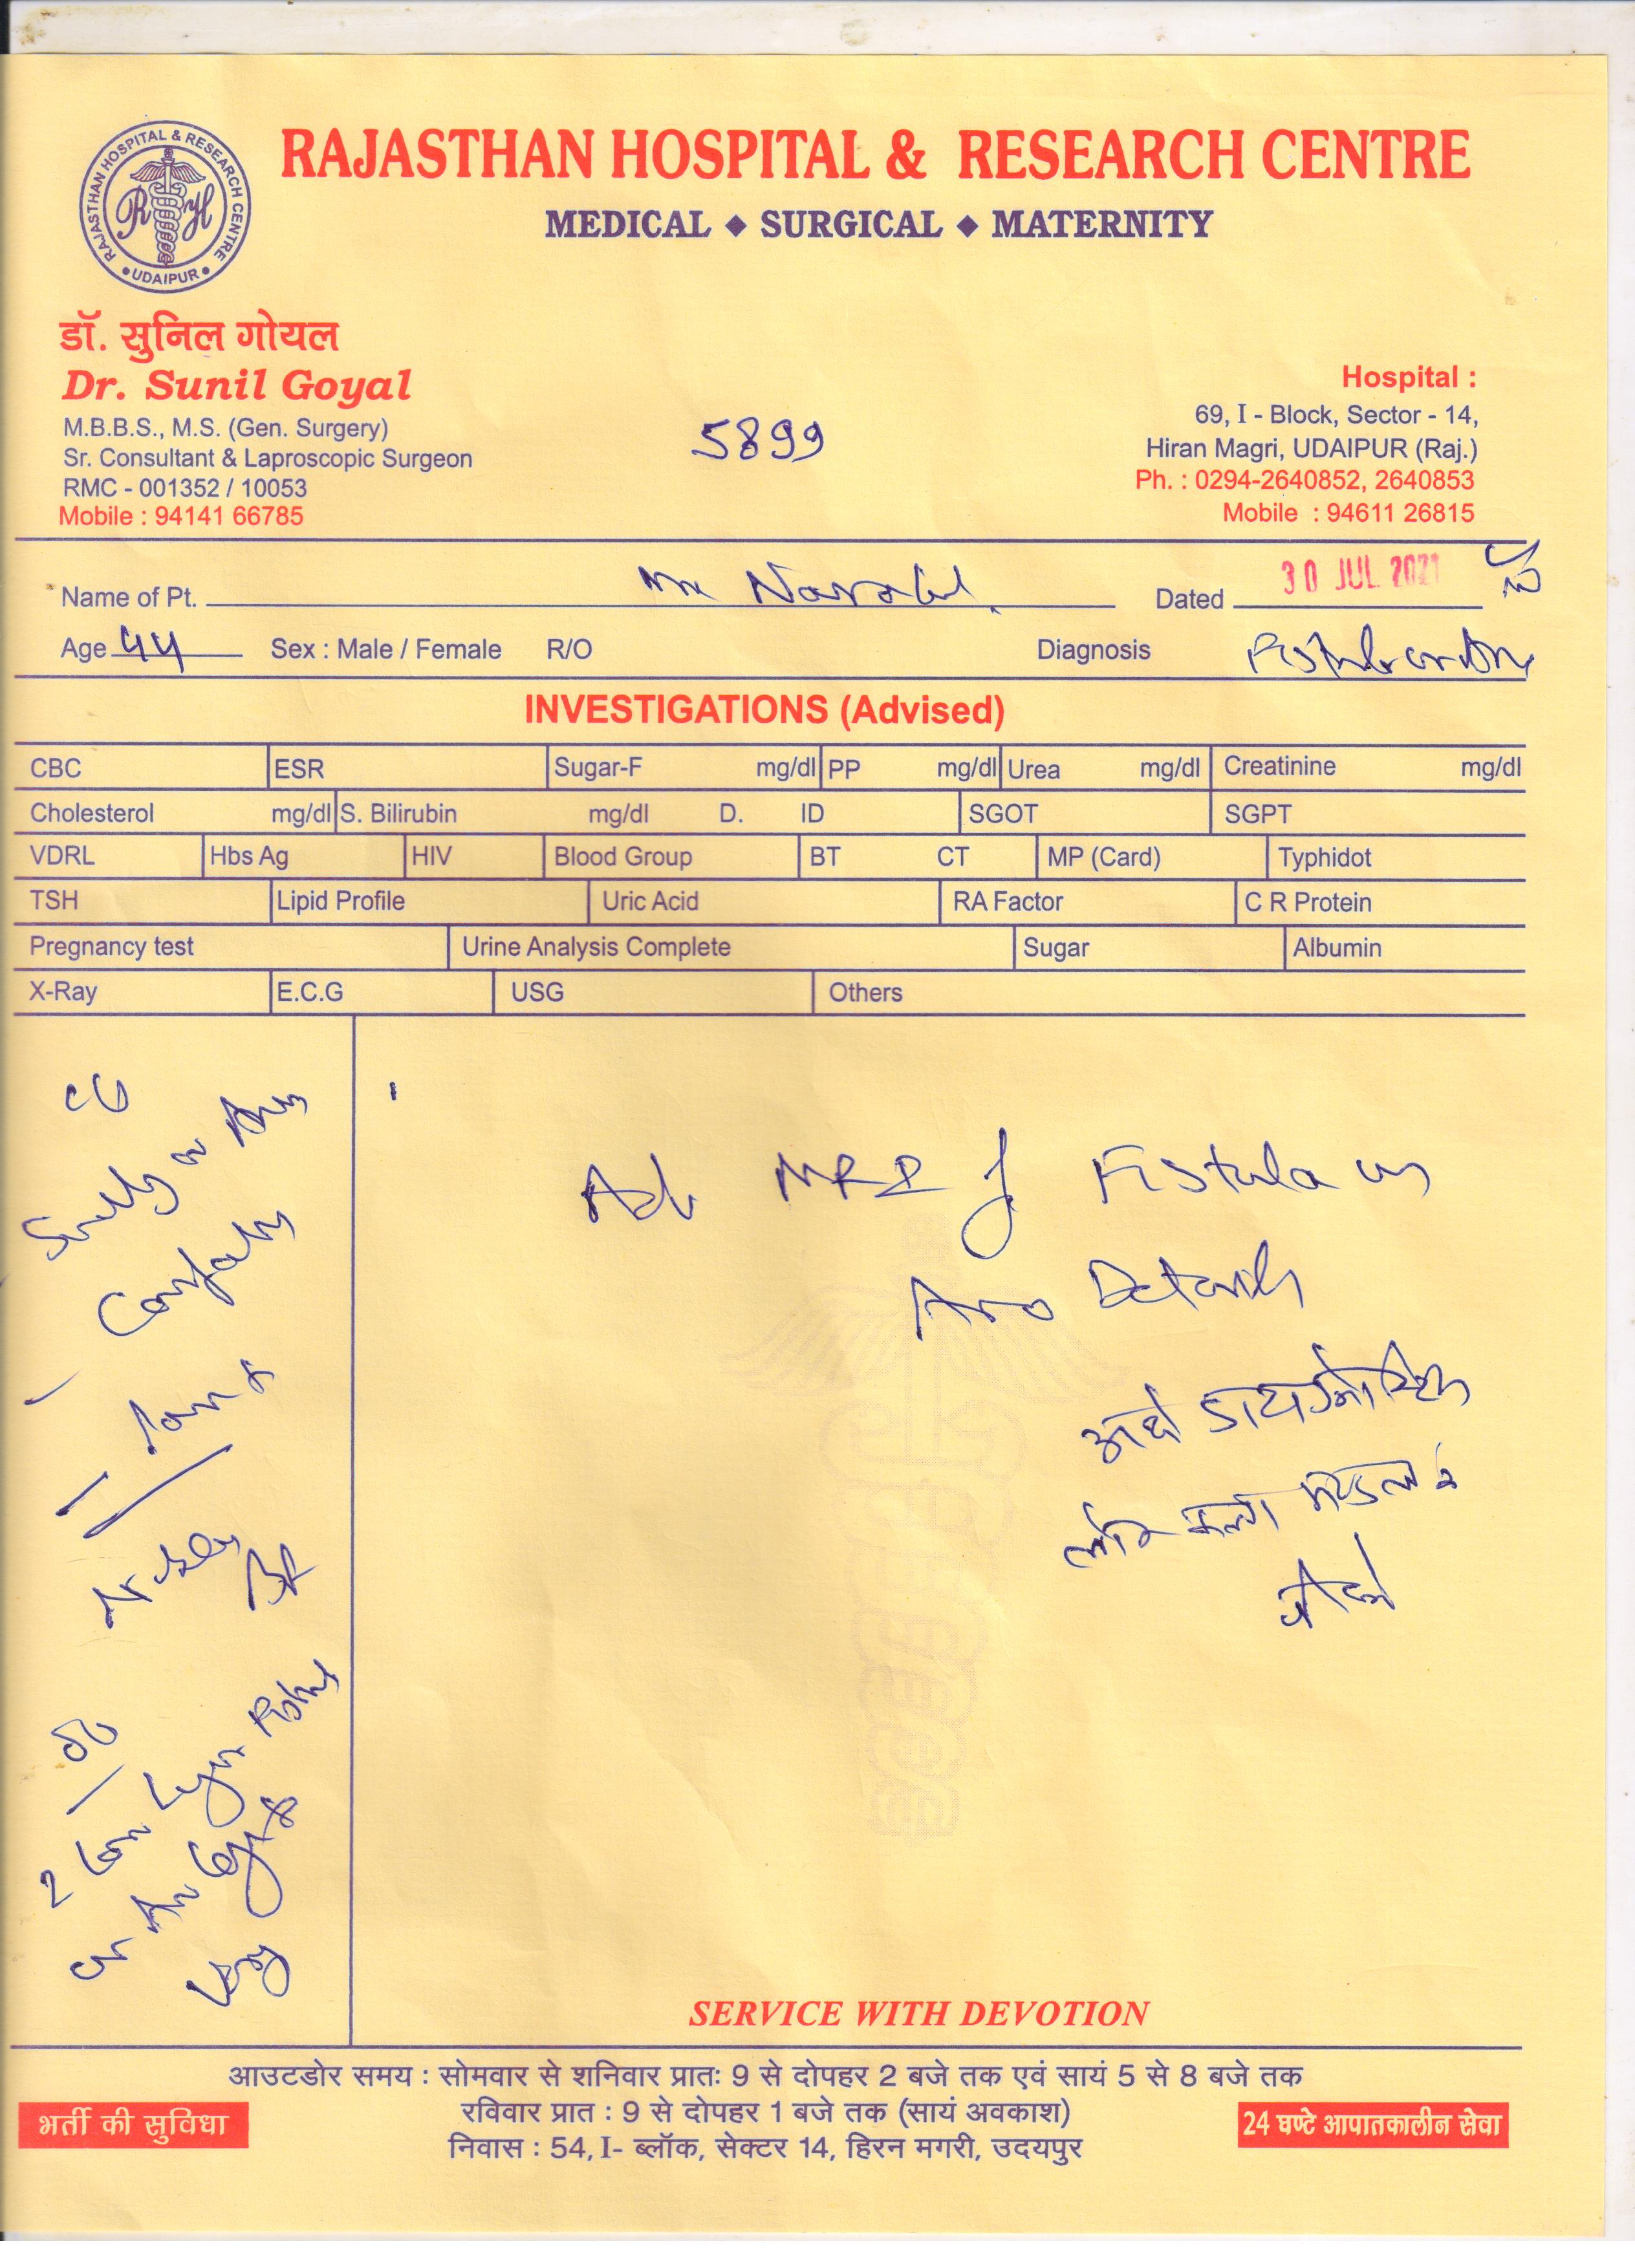 RAJASTHAN HOSPITAL & RESEARCH CENTRE
UDAIPUR
R H
RAJASTHAN HOSPITAL & RESEARCH CENTRE
MEDICAL ◆ SURGICAL ◆ MATERNITY
डॉ. सुनिल गोयल
Dr. Sunil Goyal
M.B.B.S., M.S. (Gen. Surgery)
Sr. Consultant & Laproscopic Surgeon
RMC - 001352 / 10053
Mobile : 94141 66785
5899
Hospital :
69, I - Block, Sector - 14,
Hiran Magri, UDAIPUR (Raj.)
Ph. : 0294-2640852, 2640853
Mobile : 94611 26815
Name of Pt. Dated 30 JUL 2021
Age 44 Sex : Male / Female R/O Diagnosis
INVESTIGATIONS (Advised)
CBC ESR Sugar-F mg/dl PP mg/dl Urea mg/dl Creatinine mg/dl
Cholesterol mg/dl S. Bilirubin mg/dl D. ID SGOT SGPT
VDRL Hbs Ag HIV Blood Group BT CT MP (Card) Typhidot
TSH Lipid Profile Uric Acid RA Factor C R Protein
Pregnancy test Urine Analysis Complete Sugar Albumin
X-Ray E.C.G USG Others
Adv MRI f Fistula in
Ano
SERVICE WITH DEVOTION
आउटडोर समय : सोमवार से शनिवार प्रातः 9 से दोपहर 2 बजे तक एवं सायं 5 से 8 बजे तक
रविवार प्रात : 9 से दोपहर 1 बजे तक (सायं अवकाश)
निवास : 54, I- ब्लॉक, सेक्टर 14, हिरन मगरी, उदयपुर
भर्ती की सुविधा
24 घण्टे आपातकालीन सेवा